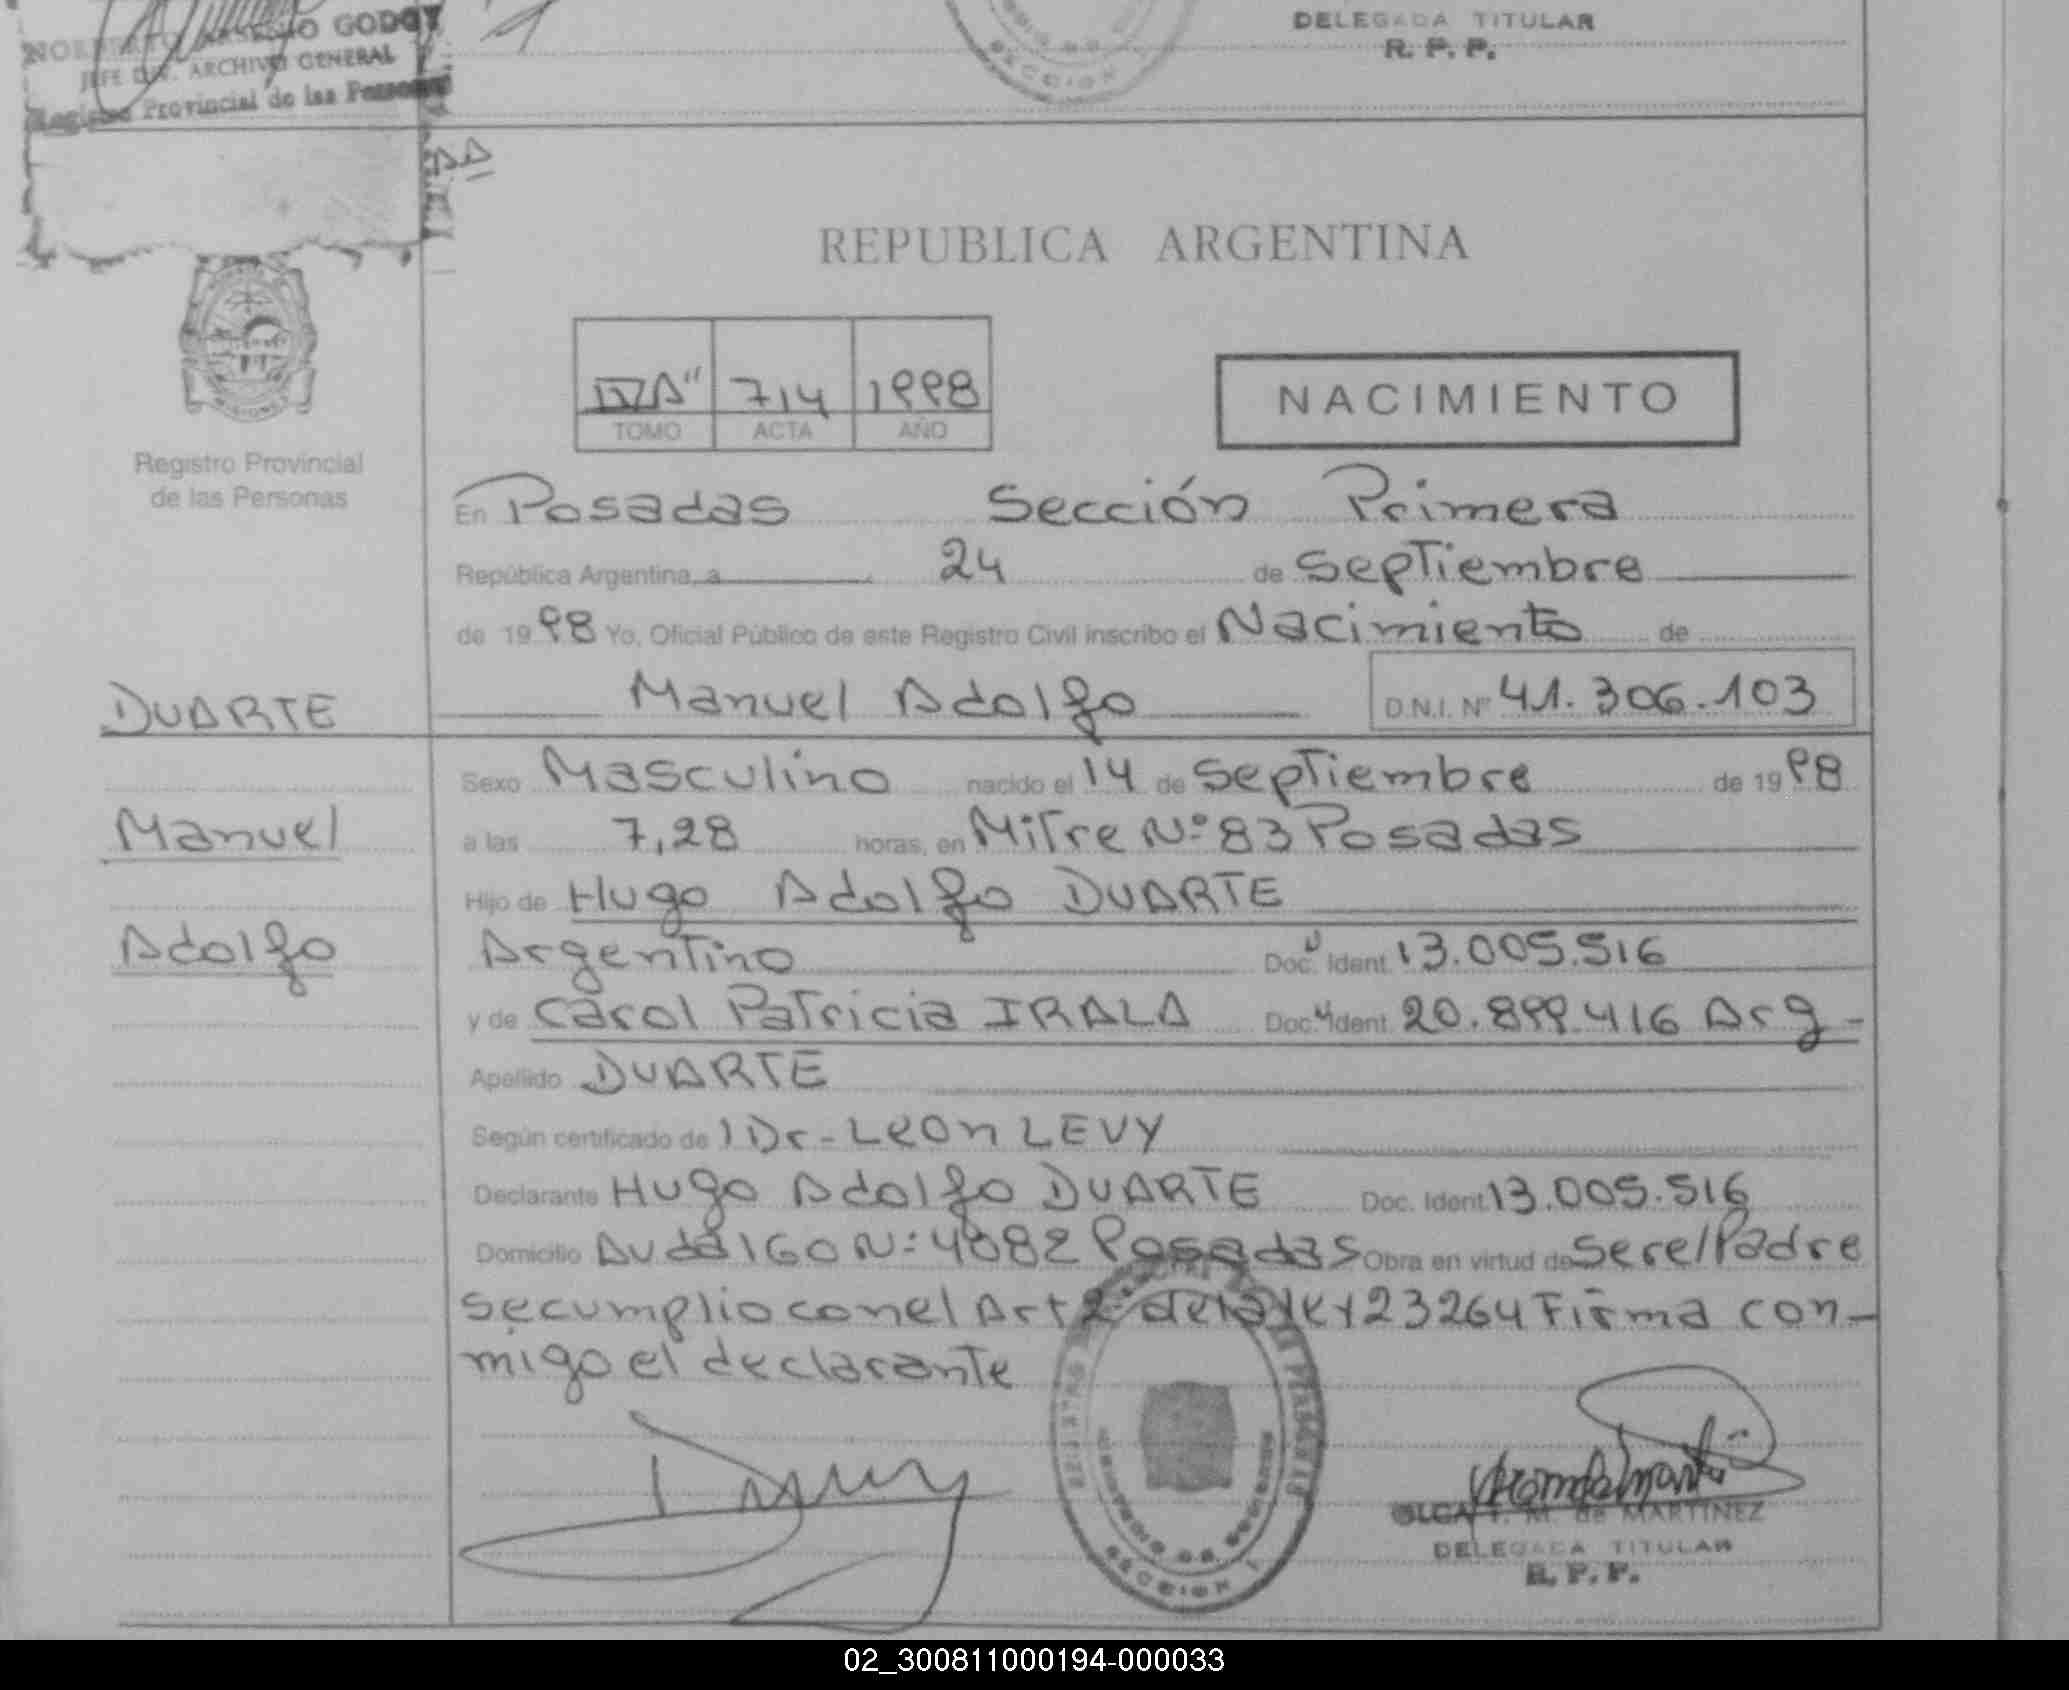 NORBERTO ARSENIO GODOY
JEFE DIV. ARCHIVO GENERAL
Registro Provincial de las Personas
DELEGADA TITULAR
R. P. P.
SECCION
REPUBLICA ARGENTINA
IV"A" 714 1998
TOMO ACTA AÑO
NACIMIENTO
MISIONES
Registro Provincial
de las Personas
En Posadas Sección Primera
República Argentina, a 24 de Septiembre
de 1998 Yo, Oficial Público de este Registro Civil inscribo el Nacimiento de
Manuel Adolfo D.N.I. Nº 41.306.103
DUARTE
Manuel
Adolfo
Sexo Masculino nacido el 14 de Septiembre de 1998
a las 7,28 horas, en Mitre Nº 83 Posadas
Hijo de Hugo Adolfo DUARTE
Argentino Doc. Ident. 13.005.516
y de Carol Patricia IRALA Doc. Ident. 20.899.416 Arg-
Apellido DUARTE
Según certificado de Dr- LEON LEVY
Declarante Hugo Adolfo DUARTE Doc. Ident. 13.005.516
Domicilio Nº 4082 Posadas Obra en virtud de Ser el Padre
Se cumplio con el Art 2 de la ley 23264 Firma con-
migo el declarante
SECCION 1
OLGA I. M. de MARTINEZ
DELEGADA TITULAR
R. P. P.
02_300811000194-000033